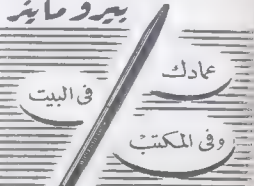 بيرو ماينر
عمادك
فى البيت
وفى المكتب